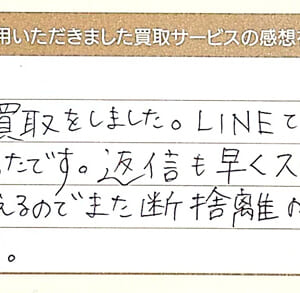 用いただきました買取サービスの感想
買取をしました。LINEで
たです。返信も早くス
えるのでまた断捨離
。